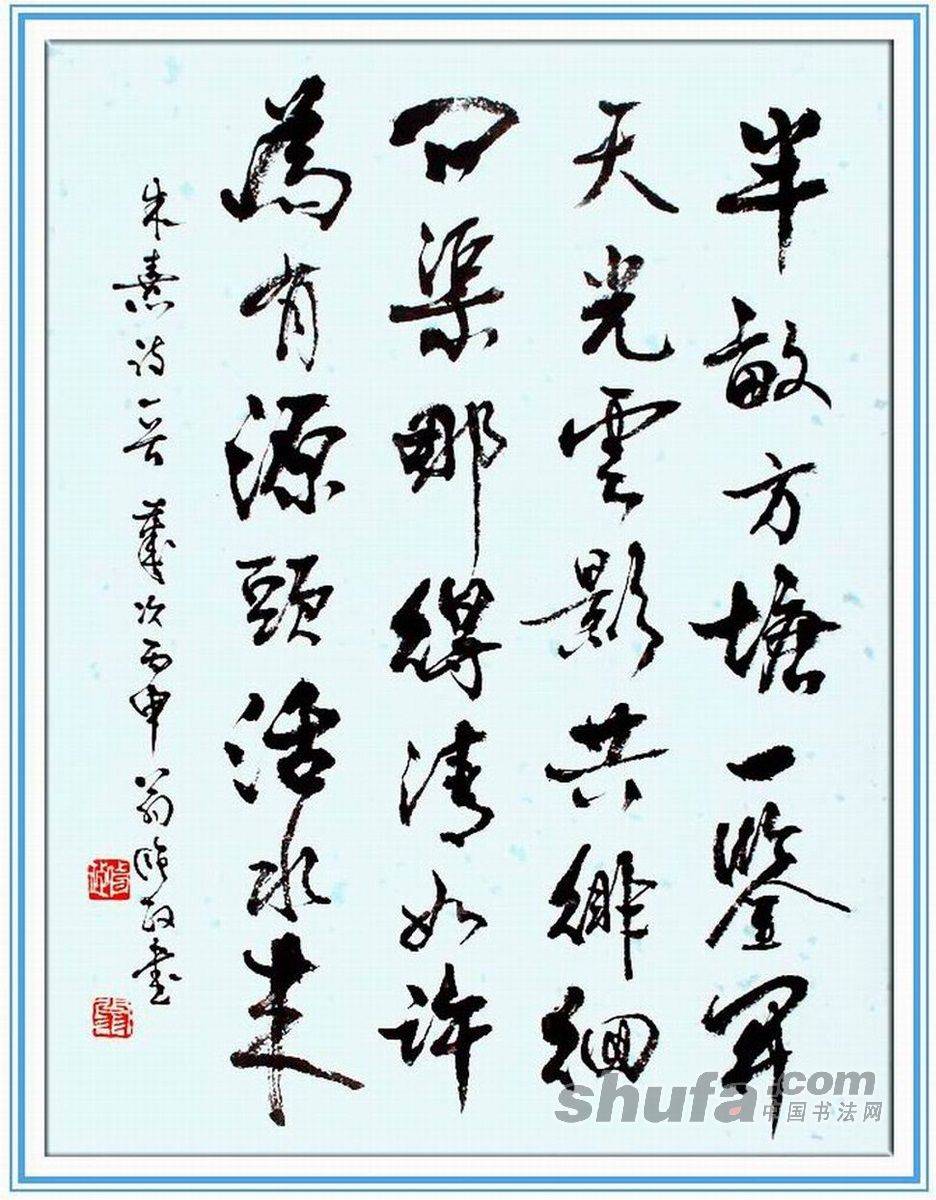 半畝方塘一鑒開
天光雲影共徘徊
問渠那得清如許
為有源頭活水來
朱熹詩一首 歲次丙申 翁 政書
shufa.com
中国书法网